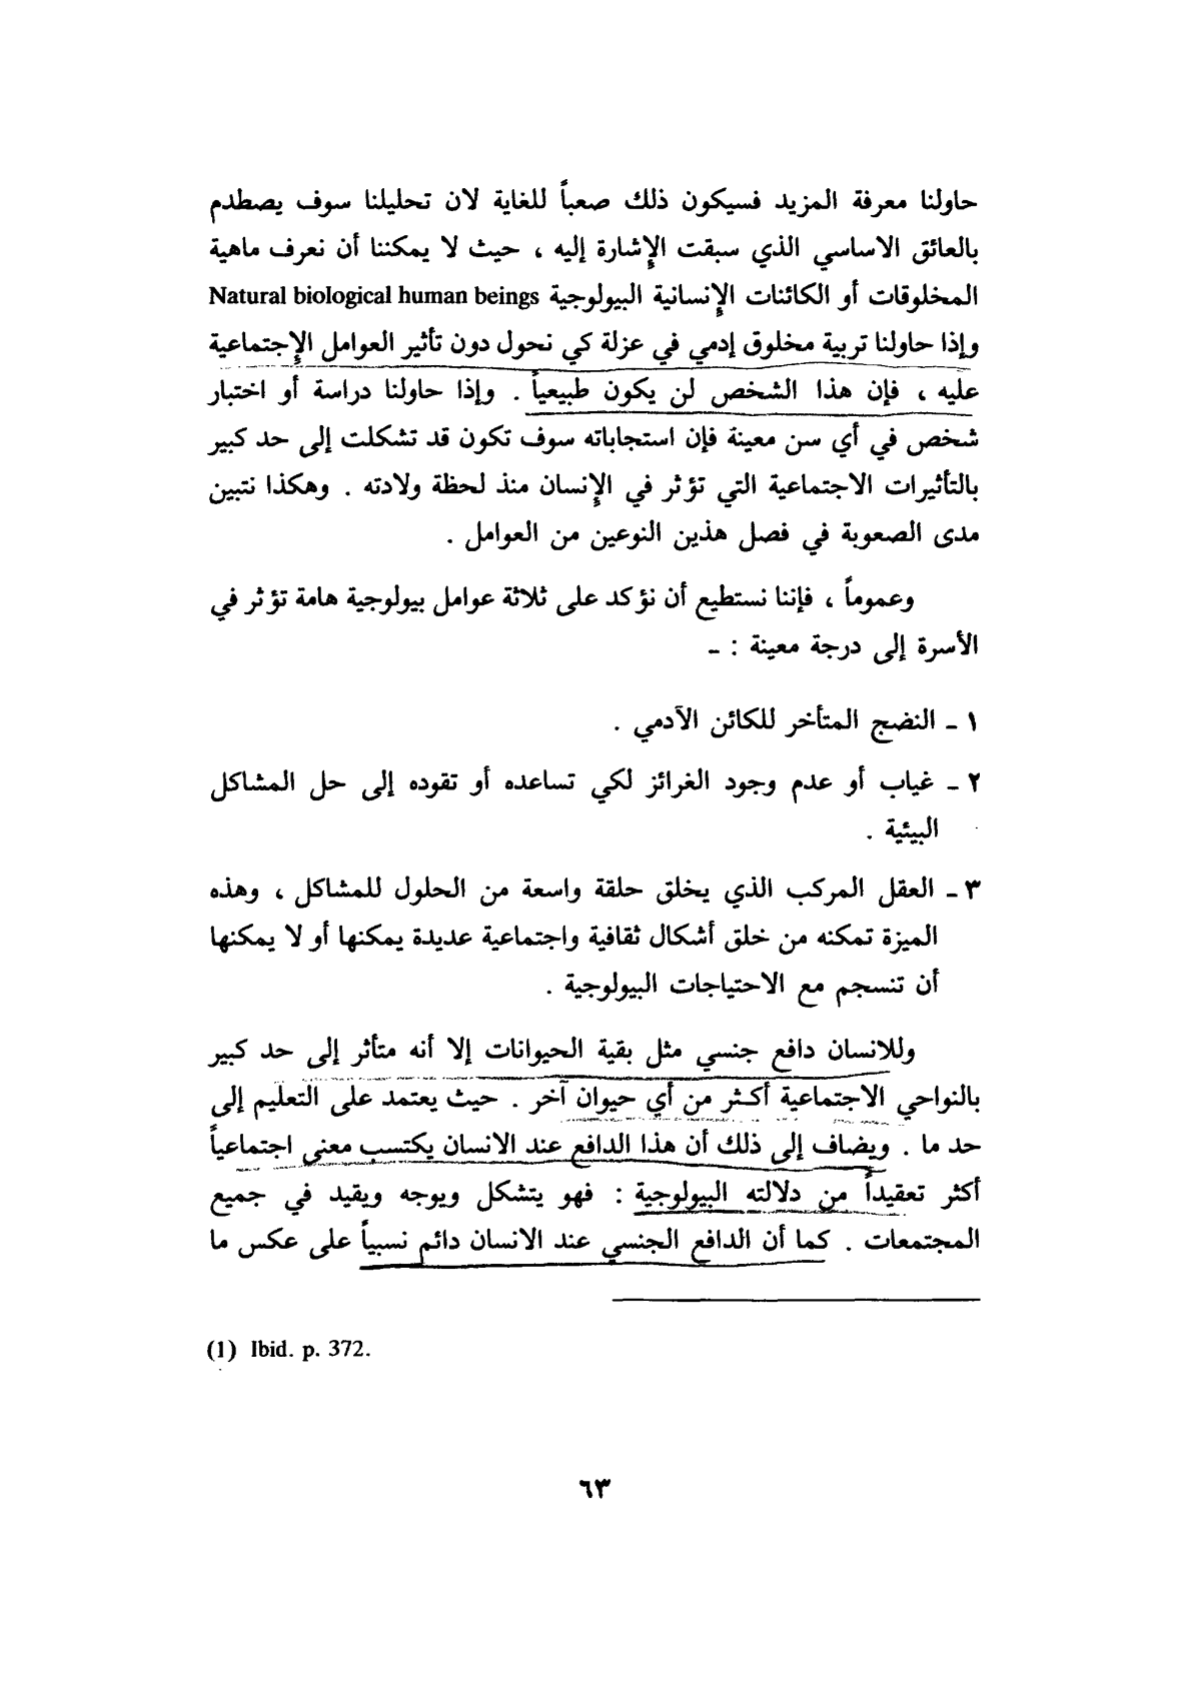 حاولنا معرفة المزيد فسيكون ذلك صعباً للغاية لان تحليلنا سوف يصطدم
بالعائق الاساسي الذي سبقت الإشارة إليه ، حيث لا يمكننا أن نعرف ماهية
المخلوقات أو الكائنات الإنسانية البيولوجية Natural biological human beings
وإذا حاولنا تربية مخلوق إدمي في عزلة كي نحول دون تأثير العوامل الإجتماعية
عليه ، فإن هذا الشخص لن يكون طبيعياً . وإذا حاولنا دراسة أو اختبار
شخص في أي سن معينة فإن استجاباته سوف تكون قد تشكلت إلى حد كبير
بالتأثيرات الاجتماعية التي تؤثر في الإنسان منذ لحظة ولادته . وهكذا نتبين
مدى الصعوبة في فصل هذين النوعين من العوامل .
وعموماً ، فإننا نستطيع أن نؤكد على ثلاثة عوامل بيولوجية هامة تؤثر في
الأسرة إلى درجة معينة : ـ
١ ـ النضج المتأخر للكائن الآدمي .
٢ ـ غياب أو عدم وجود الغرائز لكي تساعده أو تقوده إلى حل المشاكل
البيئية .
٣ ـ العقل المركب الذي يخلق حلقة واسعة من الحلول للمشاكل ، وهذه
الميزة تمكنه من خلق أشكال ثقافية واجتماعية عديدة يمكنها أو لا يمكنها
أن تنسجم مع الاحتياجات البيولوجية .
وللانسان دافع جنسي مثل بقية الحيوانات إلا أنه متأثر إلى حد كبير
بالنواحي الاجتماعية أكثر من أي حيوان آخر . حيث يعتمد على التعليم إلى
حد ما . ويضاف إلى ذلك أن هذا الدافع عند الانسان يكتسب معنى اجتماعياً
أكثر تعقيداً من دلالته البيولوجية : فهو يتشكل ويوجه ويقيد في جميع
المجتمعات . كما أن الدافع الجنسي عند الانسان دائم نسبياً على عكس ما
(1) Ibid. p. 372.
٦٣